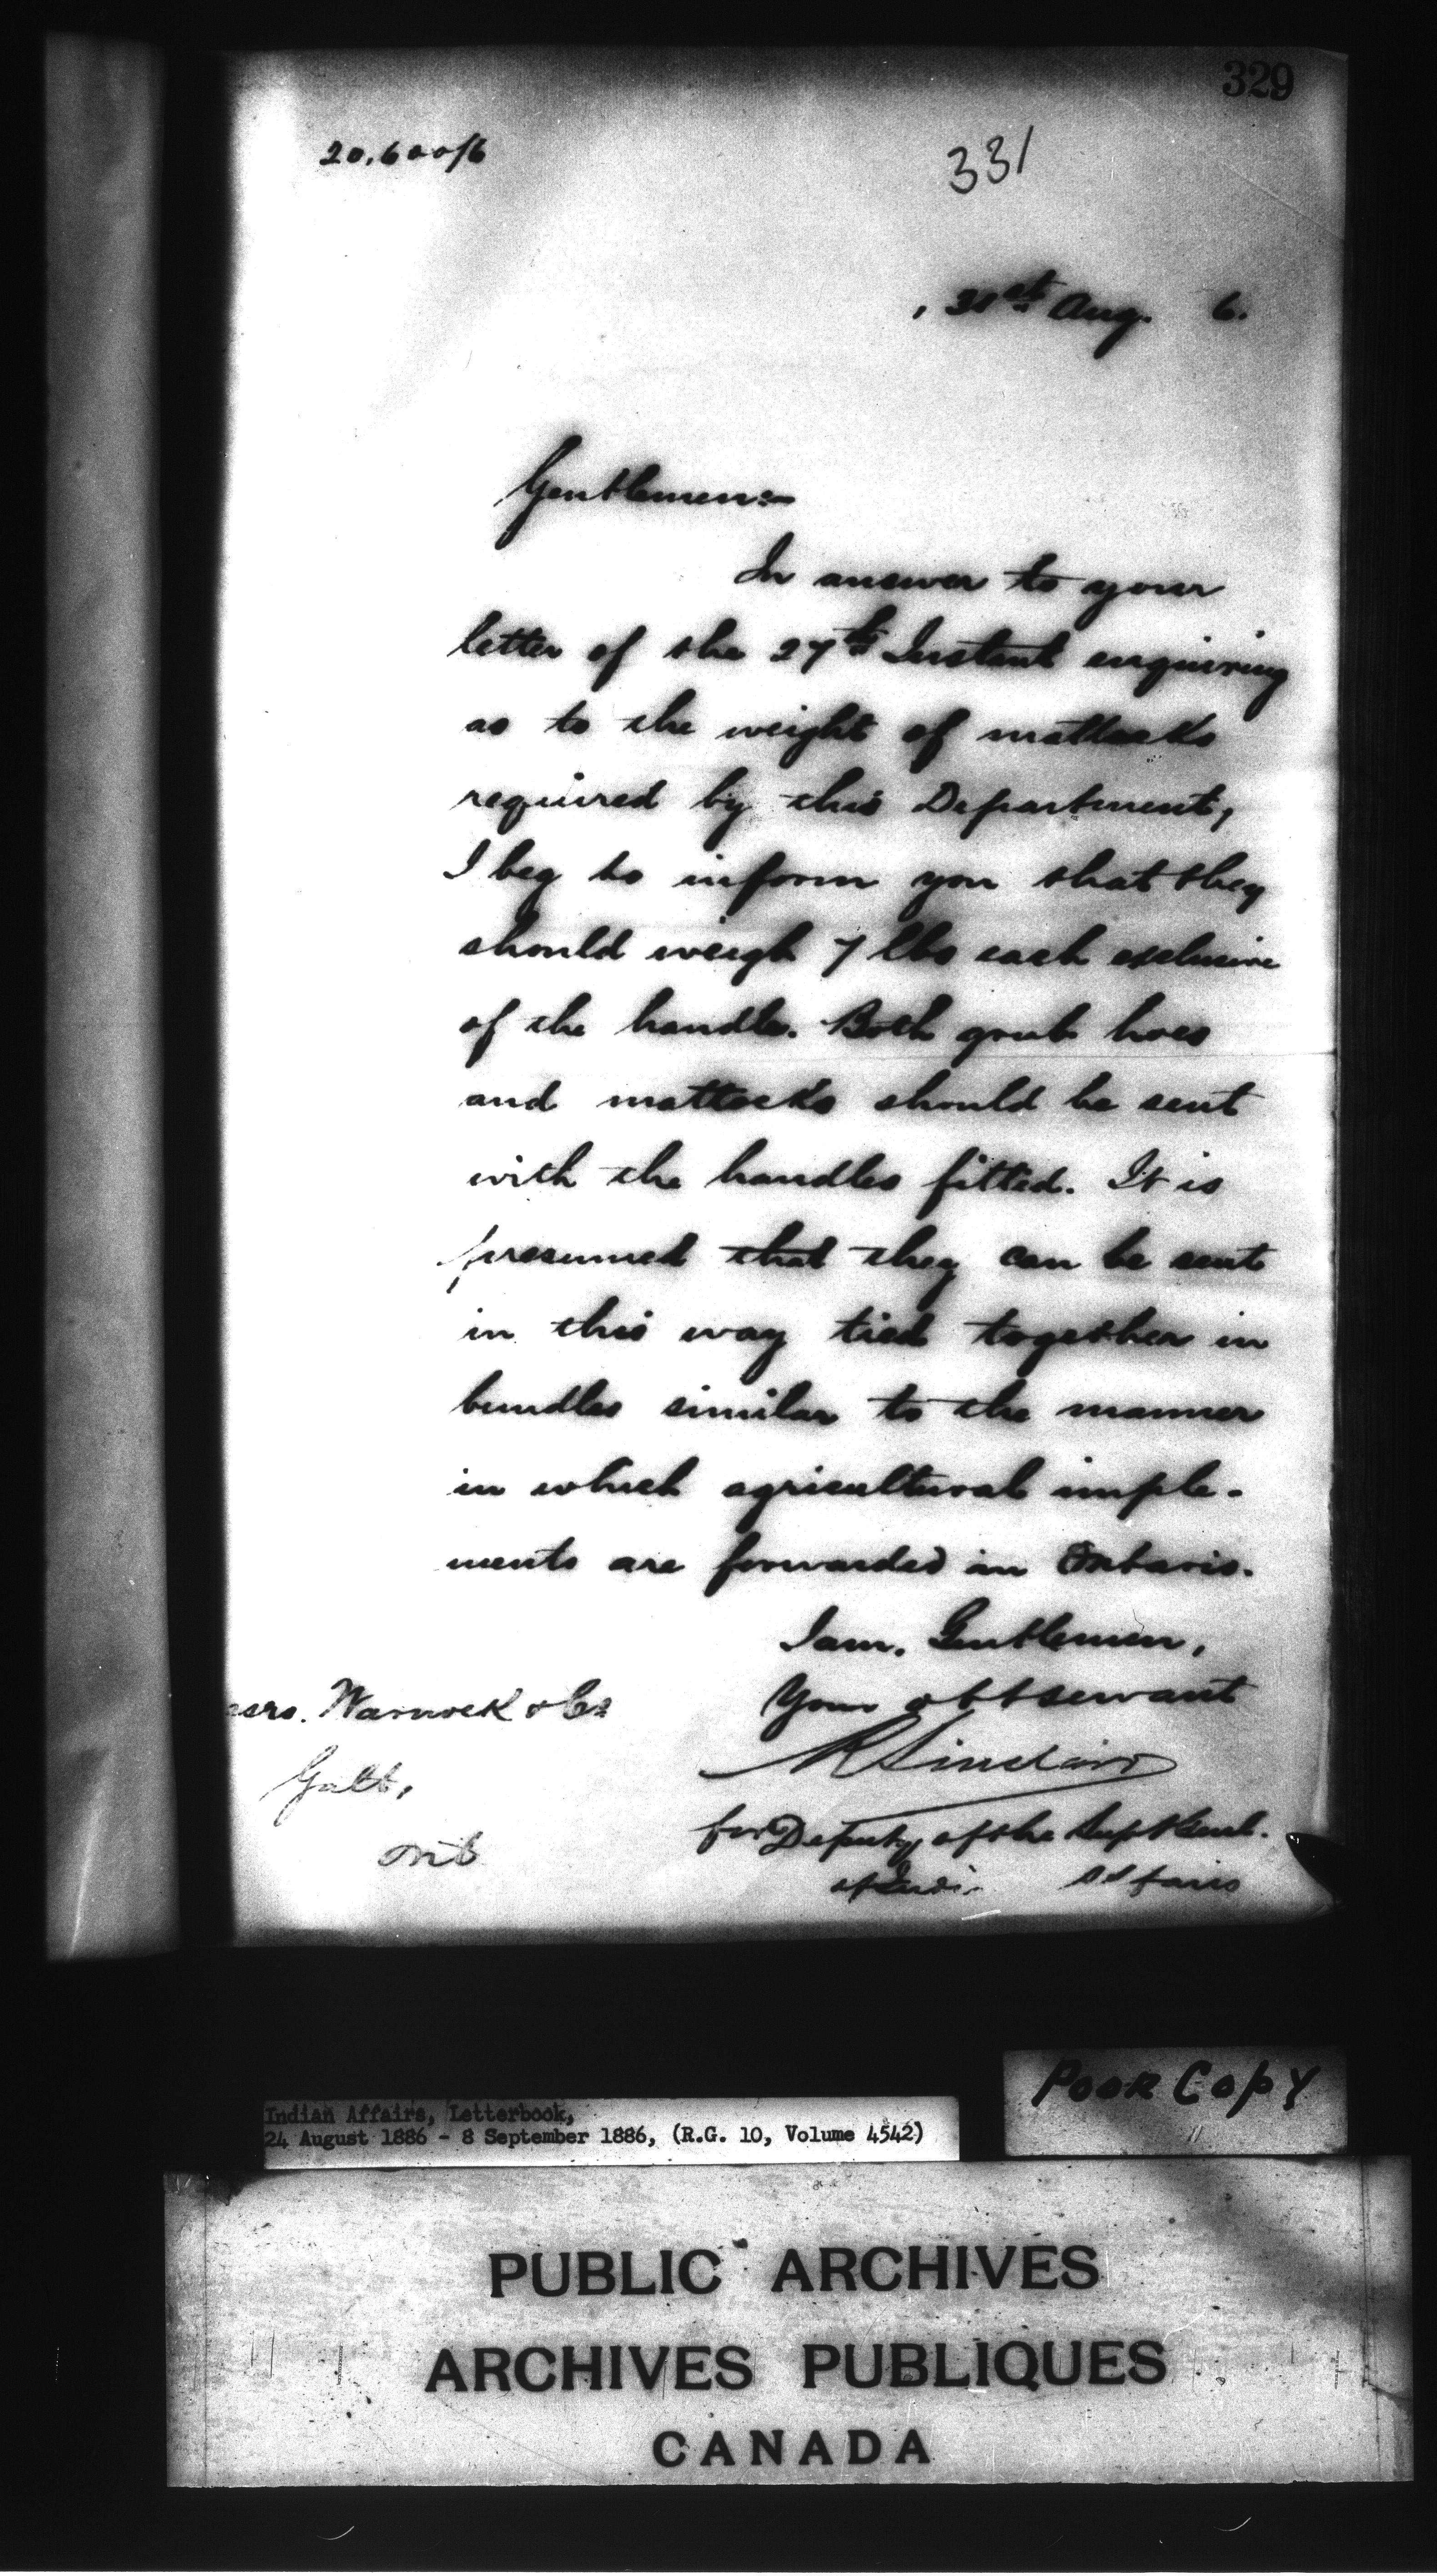 329
20,600/6
331
, 31st Aug. 6.
Gentlemen:-
In answer to your
letter of the 27th Instant enquiring
as to the weight of mattocks
required by this Department,
I beg to inform you that they
should weigh 7 lbs each exclusive
of the handle. Both grub hoes
and mattocks should be sent
with the handles fitted. It is
presumed that they can be sent
in this way tied together in
bundles similar to the manner
in which agricultural imple-
ments are forwarded in Ontario.
I am, Gentlemen,
Your obt servant
R Sinclair
for Deputy of the Supt Genl.
of Indi Affairs
essrs. Warnock & Co
Galt,
Ont
Poor Copy
Indian Affairs, Letterbook,
24 August 1886 - 8 September 1886, (R.G. 10, Volume 4542)
PUBLIC ARCHIVES
ARCHIVES PUBLIQUES
CANADA